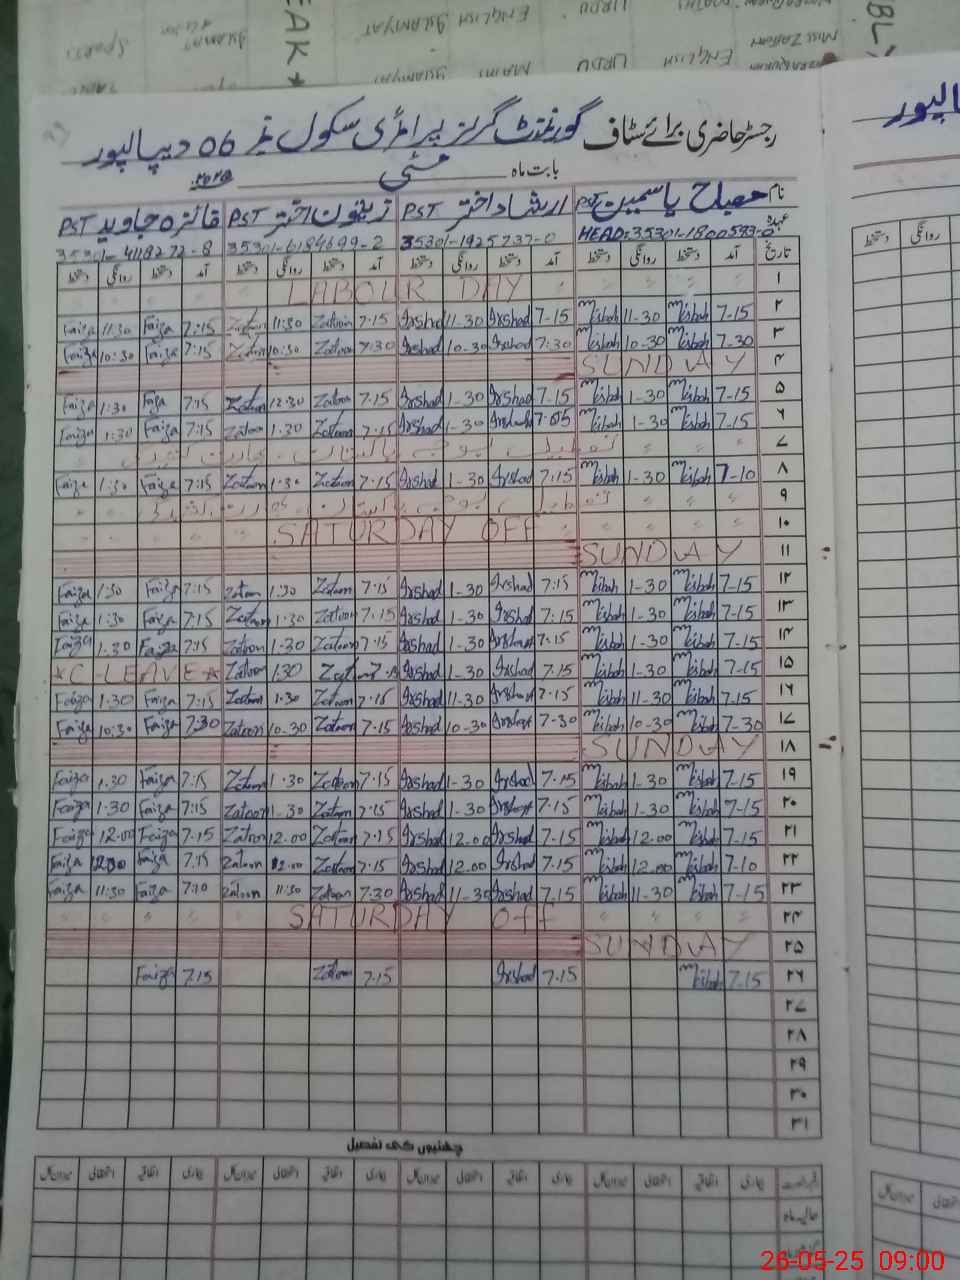 رجسٹر حاضری برائے سٹاف گورنمنٹ گرلز پرائمری سکول نمبر 06 دیپالپور
بابت ماہ مئی ۲۰۲۵
نام مصباح یاسمین PST ارشاد اختر PST زیتون اختر PST فائزہ جاوید PST
عہدہ HEAD:35301-1800593-0 35301-1925737-0 35301-6184699-2 35301-4118272-8
تاریخ آمد دستخط روانگی دستخط آمد دستخط روانگی دستخط آمد دستخط روانگی دستخط آمد دستخط روانگی دستخط
۱ LABOUR DAY
۲ 7-15 Misbah 11-30 Misbah 7-15 Irshad 11-30 Irshad 7.15 Zatoon 11:30 Zatoon 7:15 Faiza 11:30 Faiza
۳ 7-30 Misbah 10-30 Misbah 7:30 Irshad 10-30 Irshad 7:30 Zatoon 10:30 Zatoon 7:15 Faiza 10:30 Faiza
۴ SUNDAY
۵ 7-15 Misbah 1-30 Misbah 7-15 Irshad 1-30 Irshad 7.15 Zatoon 12:30 Zatoon 7:15 Faiza 1:30 Faiza
۶ 7-15 Misbah 1-30 Misbah Irshad 1-30 Irshad 7.15 Zatoon 1.30 Zatoon 7:15 Faiza 1:30 Faiza
۷
۸ 7-10 Misbah 1-30 Misbah 7:15 Irshad 1-30 Irshad 7.15 Zatoon 1:30 Zatoon 7:15 Faiza 1:30 Faiza
۹
۱۰ SATURDAY OFF
۱۱ SUNDAY
۱۲ 7-15 Misbah 1-30 Misbah 7:15 Irshad 1-30 Irshad 7.15 Zatoon 1:30 Zatoon 7:15 Faiza 1:30 Faiza
۱۳ 7-15 Misbah 1-30 Misbah 7:15 Irshad 1-30 Irshad 7.15 Zatoon 1:30 Zatoon 7:15 Faiza 1:30 Faiza
۱۴ 7-15 Misbah 1-30 Misbah 7:15 Irshad 1-30 Irshad 7.15 Zatoon 1-30 Zatoon 7:15 Faiza 1:30 Faiza
۱۵ 7-15 Misbah 1-30 Misbah 7.15 Irshad 1-30 Irshad Zatoon 1:30 Zatoon *C-LEAVE*
۱۶ 7-15 Misbah 11-30 Misbah 7-15 Irshad 11-30 Irshad 7.15 Zatoon 1.30 Zatoon 7:15 Faiza 1:30 Faiza
۱۷ 7-30 Misbah 10-30 Misbah 7-30 Irshad 10-30 Irshad 7.15 Zatoon 10-30 Zatoon 7:30 Faiza 10:30 Faiza
۱۸ SUNDAY
۱۹ 7-15 Misbah 1-30 Misbah 7.15 Irshad 1-30 Irshad 7.15 Zatoon 1.30 Zatoon 7:15 Faiza 1.30 Faiza
۲۰ 7-15 Misbah 1-30 Misbah 7.15 Irshad 1-30 Irshad 7.15 Zatoon 1-30 Zatoon 7:15 Faiza 1:30 Faiza
۲۱ 7-15 Misbah 12.00 Misbah 7.15 Irshad 12.00 Irshad 7.15 Zatoon 12.00 Zatoon 7.15 Faiza 12.00 Faiza
۲۲ 7-10 Misbah 12.00 Misbah 7.15 Irshad 12.00 Irshad 7.15 Zatoon 12.00 Zatoon 7:15 Faiza 12.00 Faiza
۲۳ 7-15 Misbah 11-30 Misbah 7.15 Irshad 11-30 Irshad 7.30 Zatoon 11:30 Zatoon 7:10 Faiza 11:30 Faiza
۲۴ SATURDAY Off
۲۵ SUNDAY
۲۶ 7-15 Misbah 7.15 Irshad 7.15 Zatoon 7.15 Faiza
۲۷
۲۸
۲۹
۳۰
۳۱
چھٹیوں کی تفصیل
26-05-25 09:00